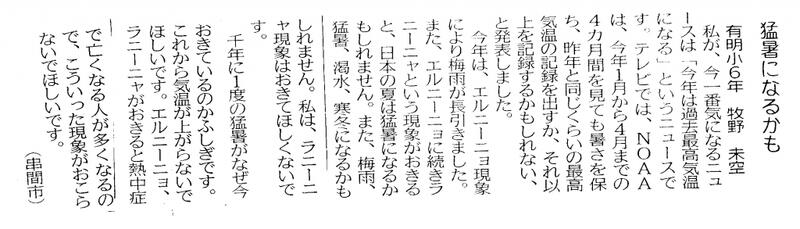 猛暑になるかも
有明小6年　牧野　未空
私が、今一番気になるニュ
ースは「今年は過去最高気温
になる」というニュースで
す。テレビでは、NOAA
は、今年1月から4月までの
4カ月間を見ても暑さを保
ち、昨年と同じくらいの最高
気温の記録を出すか、それ以
上を記録するかもしれない、
と発表しました。
今年は、エルニーニョ現象
により梅雨が長引きました。
また、エルニーニョに続きラ
ニーニャという現象がおきる
と、日本の夏は猛暑になるか
もしれません。また、梅雨、
猛暑、渇水、寒冬になるかも
しれません。私は、ラニーニ
ャ現象はおきてほしくないで
す。
千年に1度の猛暑がなぜ今
おきているのかふしぎです。
これから気温が上がらないで
ほしいです。エルニーニョ、
ラニーニャがおきると熱中症
で亡くなる人が多くなるの
で、こういった現象がおこら
ないでほしいです。
（串間市）